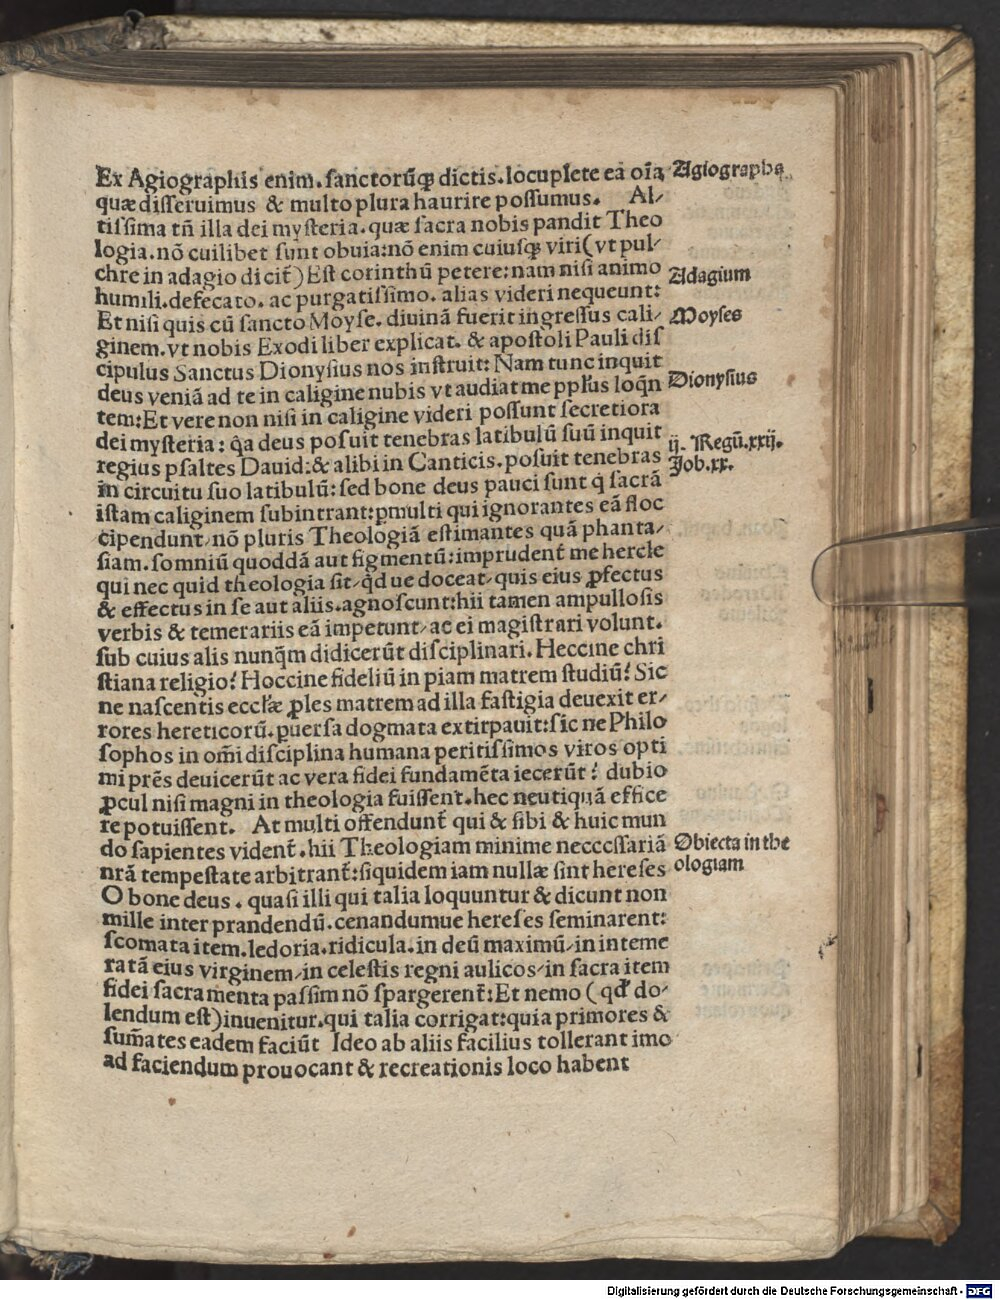 Ex Agiographis enim. sanctorūq̄ dictis. locuplete ea oīa
Agiographa
quæ disseruimus & multo plura haurire possumus. Al-
tissima tn̄ illa dei mysteria. quæ sacra nobis pandit Theo
logia. nō cuilibet sunt obuia: nō enim cuiusq̄ viri (vt pul-
chre in adagio dicit̄) Est corinthū petere: nam nisi animo
Adagium
humili. defecato. ac purgatissimo. alias videri nequeunt:
Et nisi quis cū sancto Moyse. diuinā fuerit ingressus cali-
Moyses
ginem. vt nobis Exodi liber explicat. & apostoli Pauli dis
cipulus Sanctus Dionysius nos instruit: Nam tunc inquit
deus veniā ad te in caligine nubis vt audiat me pplus loq̄n
Dionysius
tem: Et vere non nisi in caligine videri possunt secretiora
dei mysteria: q̄a deus posuit tenebras latibulū suū inquit
ij. Regū. xxij.
regius psaltes Dauid: & alibi in Canticis. posuit tenebras
Job. xx.
in circuitu suo latibulū: sed bone deus pauci sunt q̄ sacrā
istam caliginem subintrant: pmulti qui ignorantes eā floc
cipendunt- nō pluris Theologiā estimantes quā phanta-
siam. somniū quoddā aut figmentū: imprudent̄ me hercle
qui nec quid theologia sit- qd ue doceat- quis eius ꝓfectus
& effectus in se aut aliis. agnoscunt: hii tamen ampullosis
verbis & temerariis eā impetunt- ac ei magistrari volunt.
sub cuius alis nunq̄m didicerūt disciplinari. Heccine chri
stiana religio? Hoccine fideliū in piam matrem studiū? Sic
ne nascentis eccl̄æ ꝓles matrem ad illa fastigia deuexit er-
rores hereticorū. puersa dogmata extirpauit: sic ne Philo
sophos in om̄i disciplina humana peritissimos viros opti
mi prēs deuicerūt ac vera fidei fundamēta iecerūt? dubio
ꝓcul nisi magni in theologia fuissent. hec neutiquā effice
re potuissent. At multi offendunt̄ qui & sibi & huic mun
do sapientes vident̄. hii Theologiam minime necessariā
Obiecta in the
nrā tempestate arbitrant̄: siquidem iam nullæ sint hereses
ologiam
O bone deus. quasi illi qui talia loquuntur & dicunt non
mille inter prandendū. cenandumue hereses seminarent:
scomata item. ledoria. ridicula. in deū maximū- in inteme
ratā eius virginem- in celestis regni aulicos- in sacra item
fidei sacramenta passim nō spargerent̄: Et nemo (qd̄ do-
lendum est) inuenitur. qui talia corrigat: quia primores &
sum̄ates eadem faciūt Ideo ab aliis facilius tollerant imo
ad faciendum prouocant & recreationis loco habent
Digitalisierung gefördert durch die Deutsche Forschungsgemeinschaft - DFG